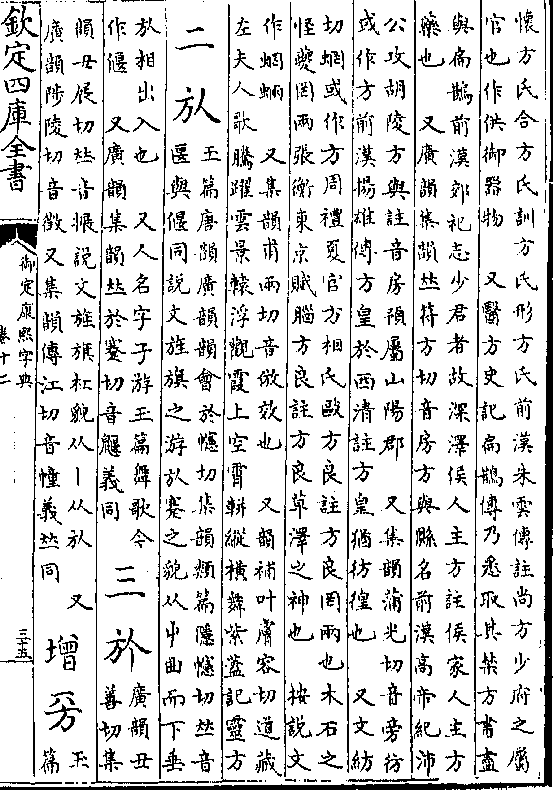 懷方氏合方氏訓方氏形方氏前漢朱雲傳註尚方少府之屬
官也作供御器物　又醫方史記扁鵲傳乃悉取其禁方書盡
與扁鵲前漢郊祀志少君者故深澤侯人主方註侯家人主方
藥也　又廣韻集韻𠀤符方切音房方與縣名前漢高帝紀沛
公攻胡陵方與註音房預屬山陽郡　又集韻蒲光切音旁彷
或作方前漢揚雄傳方皇於西清註方皇猶彷徨也　又文紡
切蝄或作方周禮夏官方相氏毆方良註方良罔兩也木石之
怪夔罔兩張衡東京賦腦方良註方良草澤之神也　按說文
作蝄蜽　又集韻甫兩切音倣效也　又韻補叶膚容切道藏
左夫人歌騰躍雲景轅浮觀霞上空霄軿縱橫舞紫蓋記靈方
二㫃　玉篇唐韻廣韻韻會於幰切集韻類篇隱幰切𠀤音
匽與偃同說文旌旗之游㫃蹇之貌从屮曲而下垂
㫃相出入也　又人名字子游玉篇舞歌令
作偃　又廣韻集韻𠀤於蹇切音鼴義同
三㫄　廣韻丑善切集
韻丑展切𠀤音搌說文旌旗杠貌从丨从㫃　又
廣韻陟陵切音徵又集韻傳江切音幢義𠀤同
增　玉篇
欽定四庫全書
御定康熙字典
卷十二
三五